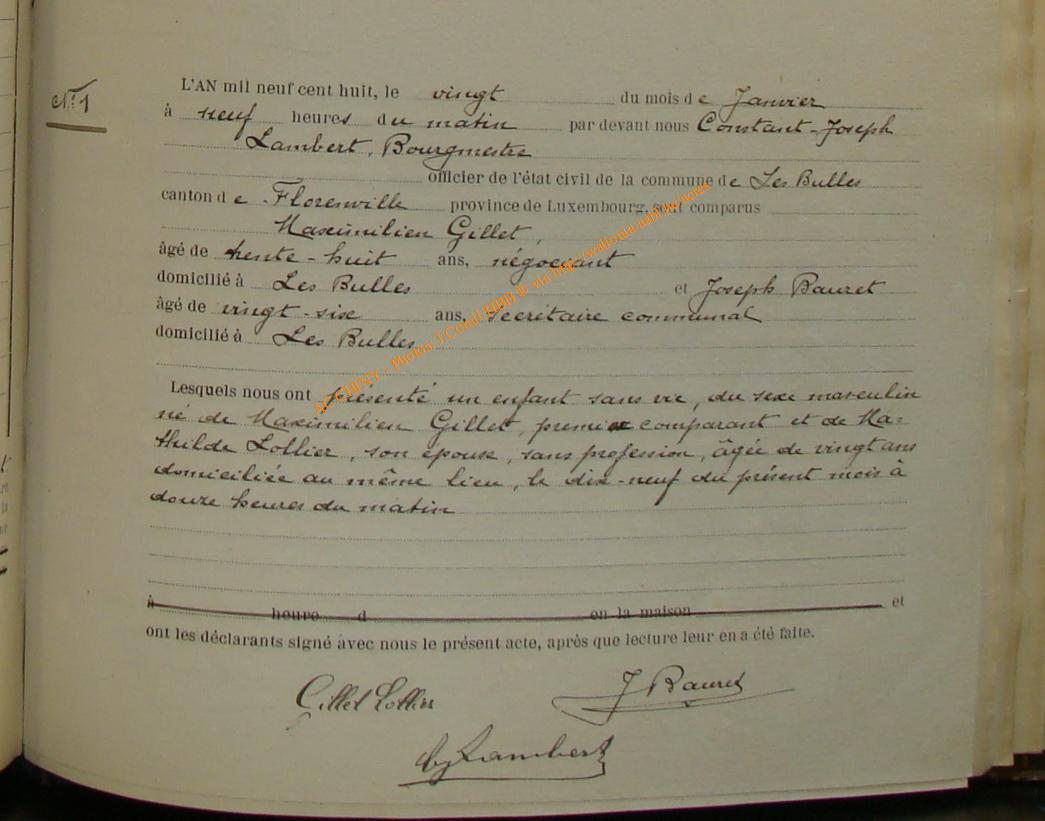 N° 1
L'AN mil neuf cent huit, le vingt du mois de Janvier
à neuf heures du matin par devant nous Constant-Joseph
Lambert, Bourgmestre
officier de l'état civil de la commune de Les Bulles
canton de Florenville province de Luxembourg, sont comparus
Maximilien Gillet,
âgé de trente-huit ans, négociant
domicilié à Les Bulles et Joseph Bauret
âgé de vingt-six ans, secrétaire communal
domicilié à Les Bulles
Lesquels nous ont présenté un enfant sans vie, du sexe masculin
né de Maximilien Gillet, premier comparant et de Ma=
thilde Lollier, son épouse, sans profession, âgée de vingt ans
domiciliée au même lieu, le dix-neuf du présent mois à
douze heures du matin
à heure d en la maison et
ont les déclarants signé avec nous le présent acte, après que lecture leur en a été faite.
Gillet Lollier J Bauret
Lambert